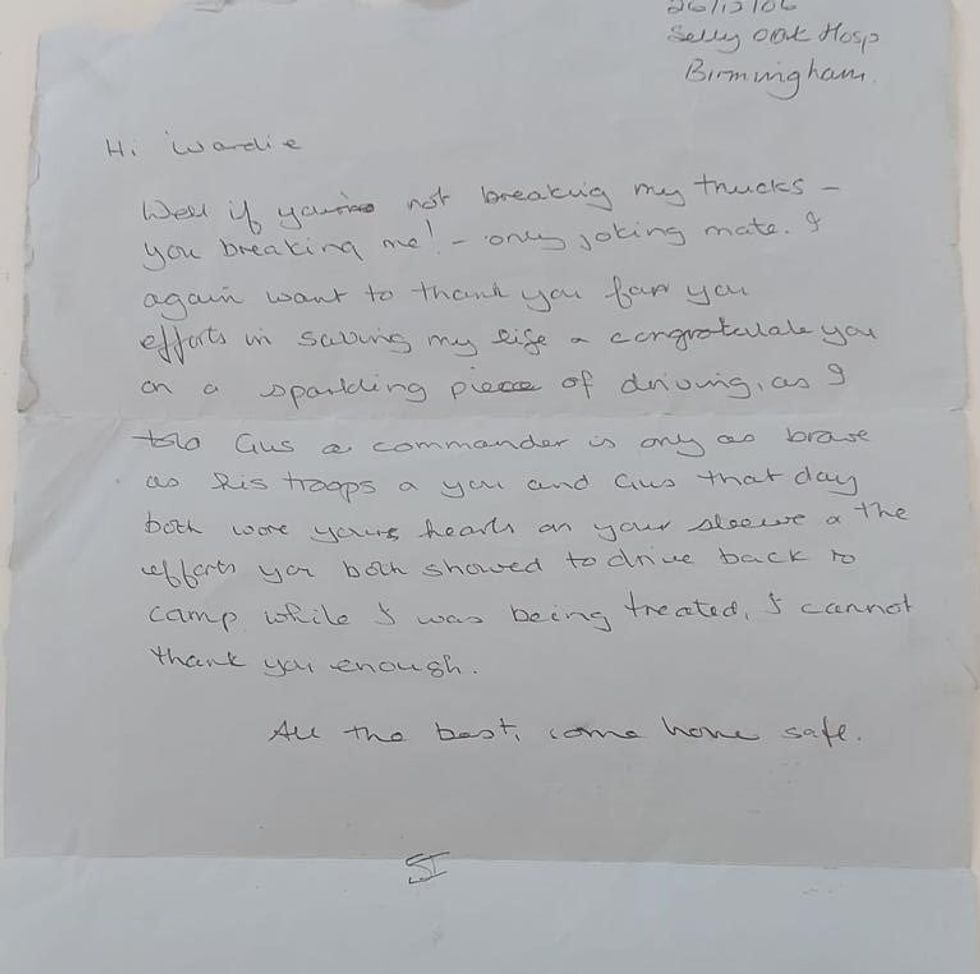 26/12/06
Selly Oak Hosp
Birmingham.
Hi Wardie
Well if you not breaking my trucks –
you breaking me! – only joking mate. I
again want to thank you for you
efforts in saving my life & congratulate you
on a sparkling piece of driving, as I
told Gus a commander is only as brave
as his troops & you and Gus that day
both wore yours hearts on your sleeve & the
efforts you both showed to drive back to
camp while I was being treated, I cannot
thank you enough.
All the best, come home safe.